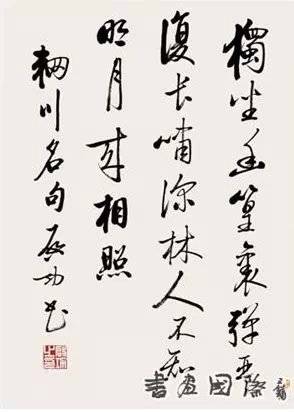 獨坐幽篁裏彈琴
復長嘯深林人不知
明月來相照
輞川名句 啟功書
書畫國際